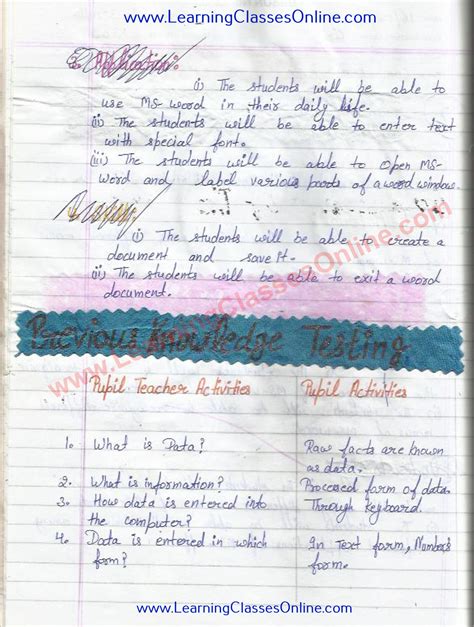 www.LearningClassesOnline.com
3. Application:
(i) The students will be able to
use MS-word in their daily life.
(ii) The students will be able to enter text
with special font.
(iii) The students will be able to open MS-
Word and label various parts of a word window.
(i) The students will be able to create a
document and save it.
(ii) The students will be able to exit a word
document.
www.LearningClassesOnline.com
Previous Knowledge Testing
Pupil Teacher Activities Pupil Activities
1. What is Data? Raw facts are known
as data.
2. What is information? Processed form of data.
3. How data is entered into Through Keyboard.
the computer?
4. Data is entered in which In Text form, Numbers
form? form.
www.LearningClassesOnline.com